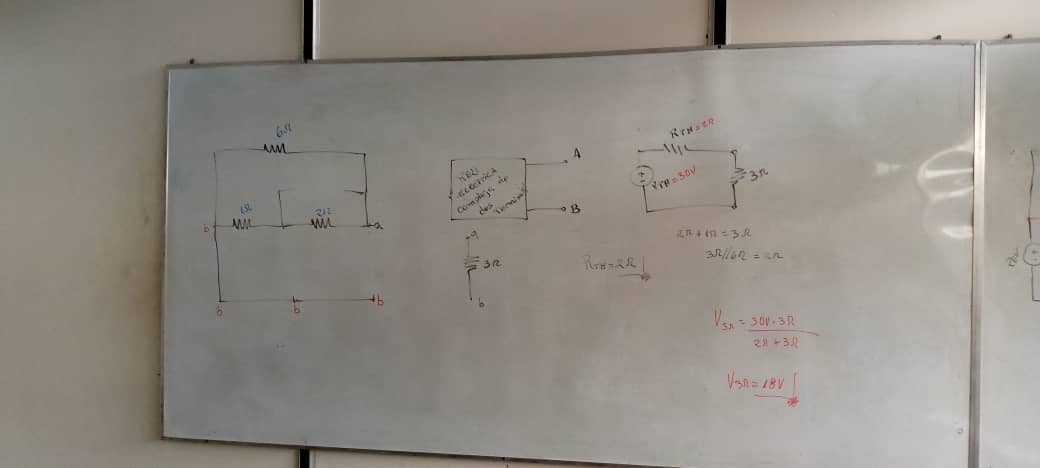 6Ω
1Ω
2Ω
b
a
b
b
b
RED
electrica
compleja de
dos terminal
A
B
a
3Ω
b
RTH=2Ω
RTH=2Ω
VTH=30V
3Ω
2Ω+1Ω=3Ω
3Ω//6Ω=2Ω
V3Ω = 30V·3Ω
2Ω+3Ω
V3Ω=18V